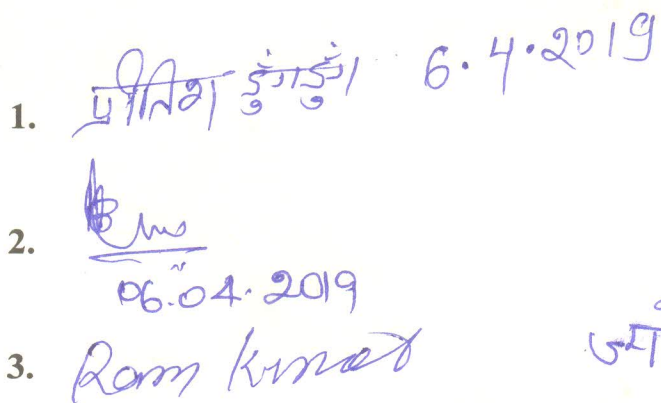 1. प्रीतिश डुंगडुंग 6.4.2019
2.
06.04.2019
3. Ram Kumar